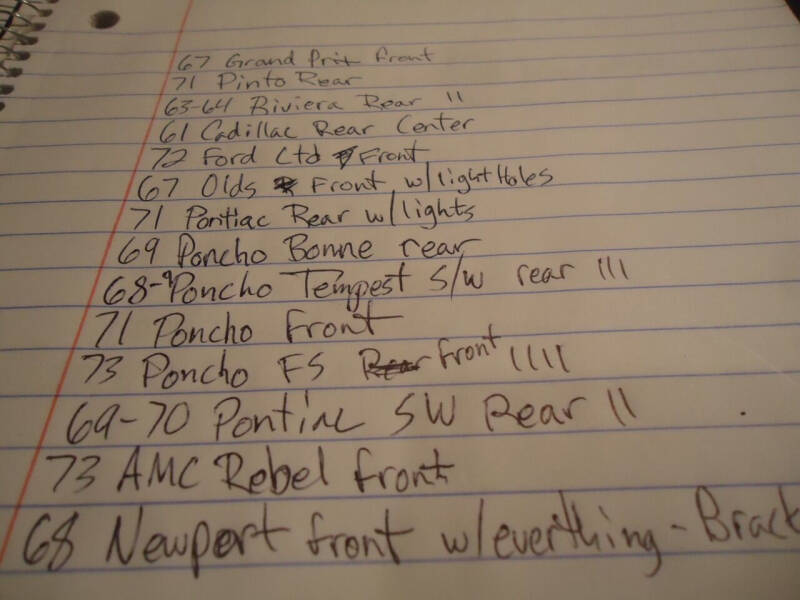 67 Grand Prix Front
71 Pinto Rear
63-64 Riviera Rear 11
61 Cadillac Rear Center
72 Ford Ltd Front
67 Olds Front w/light Holes
71 Pontiac Rear w/lights
69 Poncho Bonne rear
68-9 Poncho Tempest S/W rear 111
71 Poncho Front
73 Poncho FS Rear Front 1111
69-70 Pontiac SW Rear 11
73 AMC Rebel front
68 Newport front w/everthing - Brack